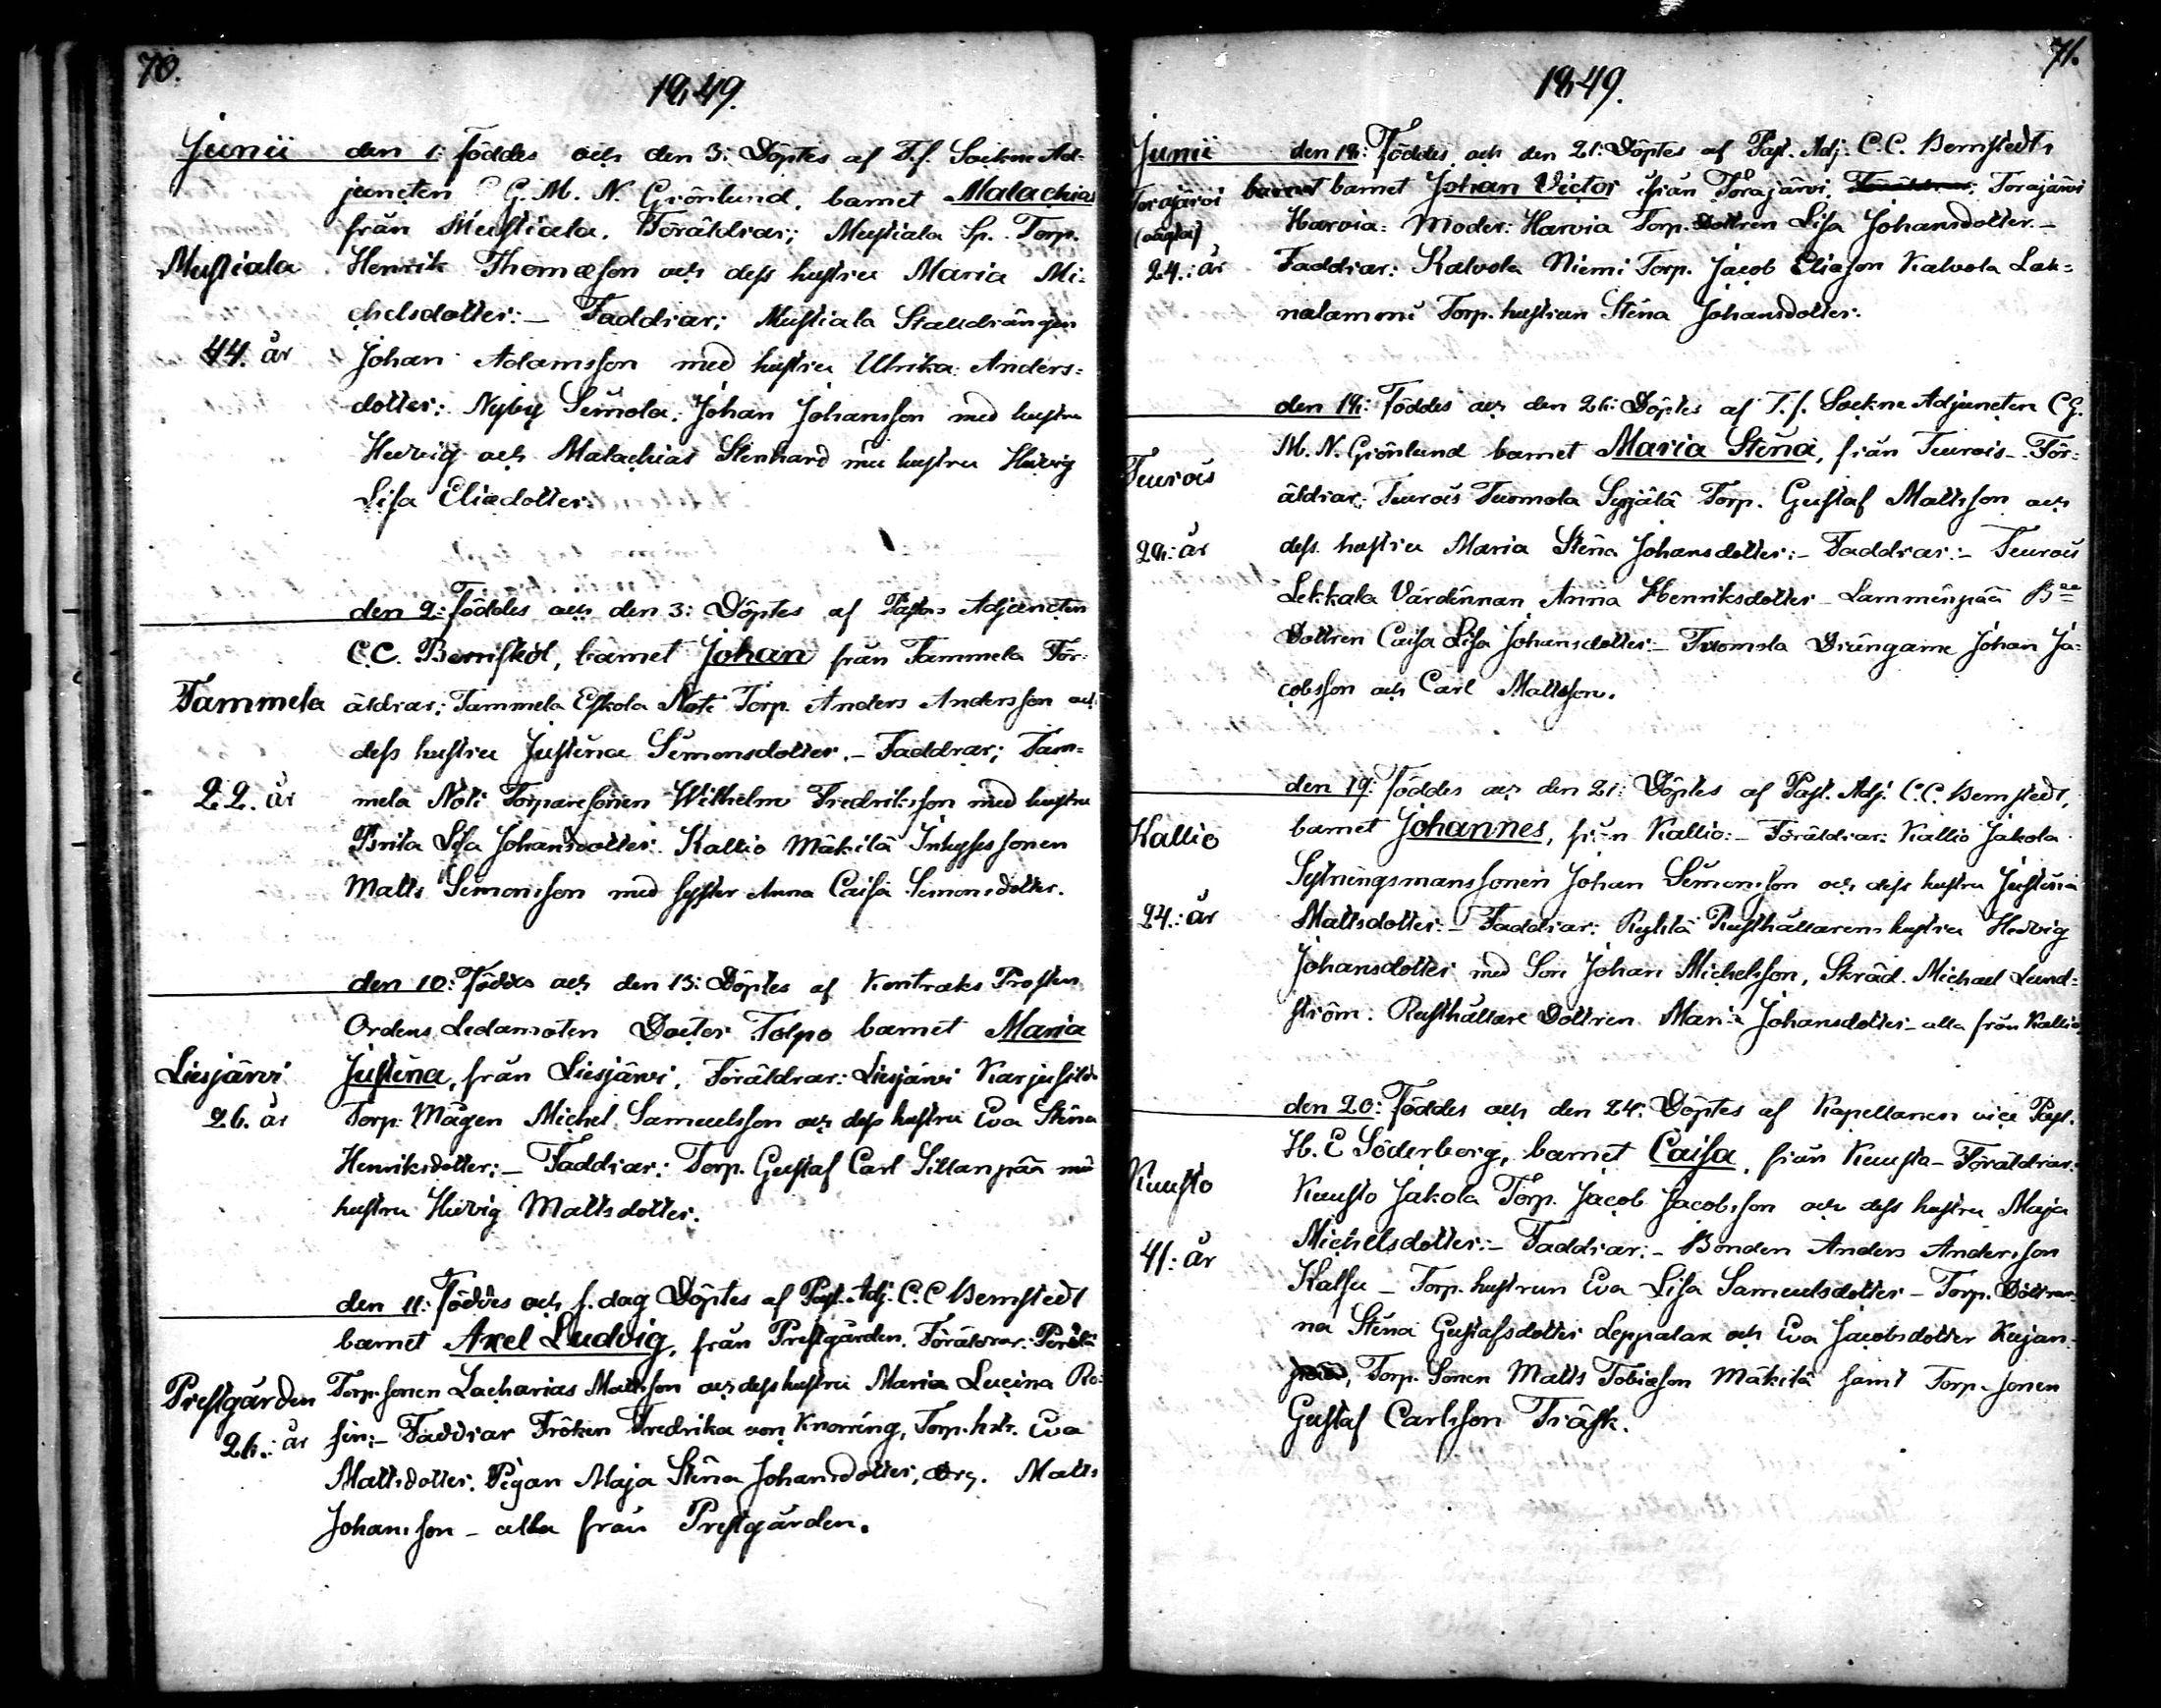 70.
1849.
Junii den 1: föddes och den 3: Döptes af T.f. Sockne Ad-
juncten C G. M. N. Grönlund, barnet Malachias
från Mustiala. Föräldrar; Mustiala Sp. Torp.
Mustiala Henrik Thomæson och dess hustru Maria Mi-
chelsdotter:— Faddrar; Mustiala Stalldrängen
44. år Johan Adamsson med hustru Ulrika Anders-
dotter: Nyby Simola: Johan Johansson med hustru
Hedvig och Malachias Stenhard med hustru Hedvig
Lisa Eliædotter.
den 2: föddes och den 3: Döptes af Pastors Adjuncten
C.C. Bernstedt, barnet Johan från Tammela För-
Tammela äldrar; Tammela Eskola Noti Torp. Anders Andersson och
dess hustru Justina Simonsdotter.— Faddrar; Tam-
22. år mela Noti Torparesonen Wilhelm Fredriksson med hustru
Brita Lisa Johansdotter. Kallio Mäkilä Inhysessonen
Matts Simonsson med syster Anna Caisa Simonsdotter.
den 10: Föddes och den 13: Döptes af Kontrakts Prosten
Ordens Ledamoten Doctor Tolpo barnet Maria
Liesjärvi Justina, från Liesjärvi. Föräldrar: Liesjärvi Karjusilda
26. år Torp. Mågen Michel Samuelsson och dess hustru Eva Stina
Henriksdotter;— Faddrar: Torp. Gustaf Carl Sillanpää med
hustru Hedvig Mattsdotter.
den 11: Föddes och s. dag Döptes af Past. Adj. C.C Bernstedt
barnet Axel Ludvig, från Prestgården. Föräldrar: Perälä
Prestgården Torp. sonen Zacharias Mattsson och dess hustru Maria Lucina Ro-
26.: år sin:— Faddrar Fröken Fredrika von Knorring, Torp. hstr. Eva
Mattsdotter. Pigan Maja Stina Johansdotter, Drg. Matts
Johansson — alla från Prestgården.
71.
1849.
Junii den 18: Föddes och den 21: Döptes af Past. Adj. C.C. Bernstedt,
Torajärvi barnet Johan Victor från Torajärvi, Torajärvi
(oägta) Harvia: Moder: Harvia Torp. Dottren Lisa Johansdotter.—
24.: år Faddrar: Kalvola Niemi Torp. Jacob Eliason Kalvola Lak-
nalammi Torp. hustrun Stina Johansdotter.
den 18: föddes och den 26: Döptes af T.f. Sockne Adjuncten C G.
M. N. Grönlund barnet Maria Stina, från Teurois— För-
Teurois äldrar: Teurois Tuomola Syrjälä Torp. Gustaf Mattsson och
28: år dess hustru Maria Stina Johansdotter:— Faddrar:— Teurois
Lekkala Värdinnan Anna Henriksdotter— Lamminpää B.
Dottren Caisa Lisa Johansdotter:— Tuomola Drängarne Johan Ja-
cobsson och Carl Mattsson.
den 19: Föddes och den 21: Döptes af Past. Adj. C.C. Bernstedt,
Kallio barnet Johannes, från Kallio:— Föräldrar: Kallio Jakola
Sytningsmanssonen Johan Simonsson och dess hustru Justina
24.: år Mattsdotter:— Faddrar: Rusthållarens hustru Hedvig
Johansdotter med Son Johan Michelsson, Skräd. Michael Lund-
ström. Rusthållare Dottren Maria Johansdotter— alla från Kallio
den 20: Föddes och den 24: Döptes af Kapellanen vice Past.
H. E Söderberg, barnet Caisa, från Kuusto— Föräldrar:
Kuusto Kuusto Jakola Torp. Jacob Jacobsson och dess hustru Maja
41: år Michelsdotter:— Faddrar:— Bonden Anders Andersson
Kalsu— Torp. hustrun Eva Lisa Samuelsdotter— Torp. Döttrar-
na Stina Gustafsdotter Leppalax och Eva Jacobsdotter Kujan-
pää, Torp. Sonen Matts Tobiæson Mäkilä samt Torp. sonen
Gustaf Carlsson Träsk.